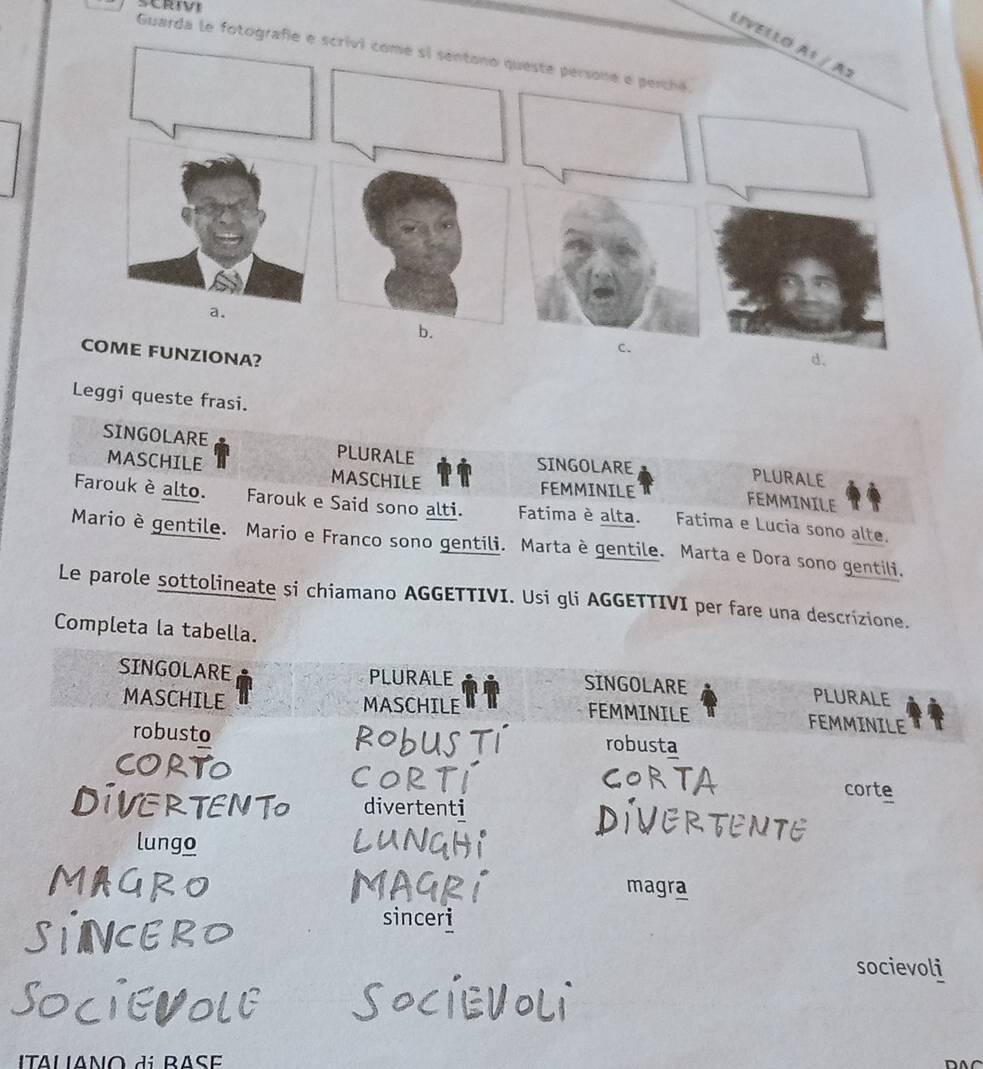 SCRIVI
LIVELLO A1 / A2
Guarda le fotografie e scrivi come si sentono queste persone e perché.
a.
b.
c.
d.
COME FUNZIONA?
Leggi queste frasi.
SINGOLARE MASCHILE PLURALE MASCHILE SINGOLARE FEMMINILE PLURALE FEMMINILE
Farouk è alto. Farouk e Said sono alti. Fatima è alta. Fatima e Lucia sono alte.
Mario è gentile. Mario e Franco sono gentili. Marta è gentile. Marta e Dora sono gentili.
Le parole sottolineate si chiamano AGGETTIVI. Usi gli AGGETTIVI per fare una descrizione.
Completa la tabella.
SINGOLARE MASCHILE PLURALE MASCHILE SINGOLARE FEMMINILE PLURALE FEMMINILE
robusto ROBUSTI robusta
CORTO CORTI CORTA corte
DIVERTENTO divertenti DIVERTENTE
lungo LUNGHI
MAGRO MAGRI magra
SINCERO sinceri
SOCIEVOLE SOCIEVOLI socievoli
ITALIANO di BASE